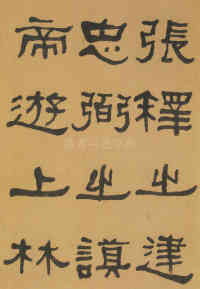 張釋之建
忠弼之謨
帝遊上林